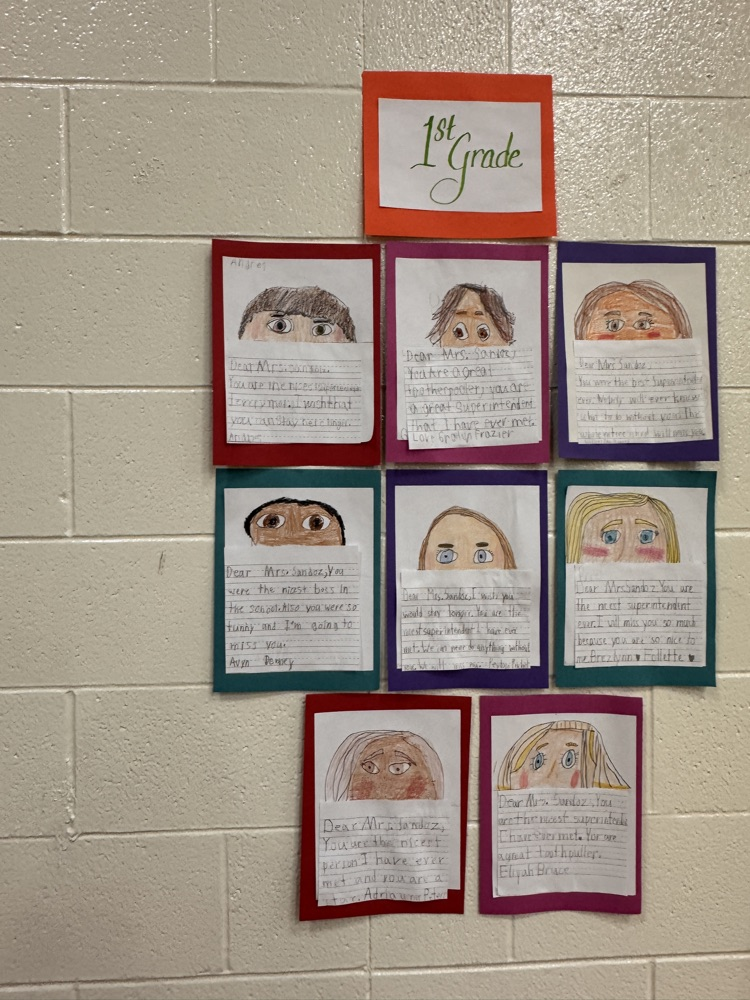 1st
Grade
Andres
Dear Mrs. Sandoz.
You are the nices
I evry met. I wish that
you can stay here longer.
Andres
Dear Mrs. Sandoz,
You Are a Great
toothpuller, you are
a great superintendent
that I have ever met.
Love Graylyn Frazier
Dear Mrs. Sandoz,
You were the best Superintendent
ever. Nobody will ever know
what to do without you. The
whole entire school will miss you.
Dear Mrs. Sandoz, You
were the nicest boss in
the school. Also you were so
funny and I'm going to
miss you.
Avyn Demery
Dear Mrs. Sandoz, I wish you
would stay longer. You are the
nicest superintendent I have ever
met. We can never do anything without
you. We will miss you.
Dear Mrs. Sandoz You are
the nicest superintendent
ever. I will miss you so much
because you are so nice to
me Follette
Dear Mrs. Sandoz,
You are the nicest
person I have ever
met and you are a
star.
Dear Mrs. Sandoz, You
are the nicest superintende
I have ever met. You are
a great toothpuller.
Elijah Bruce